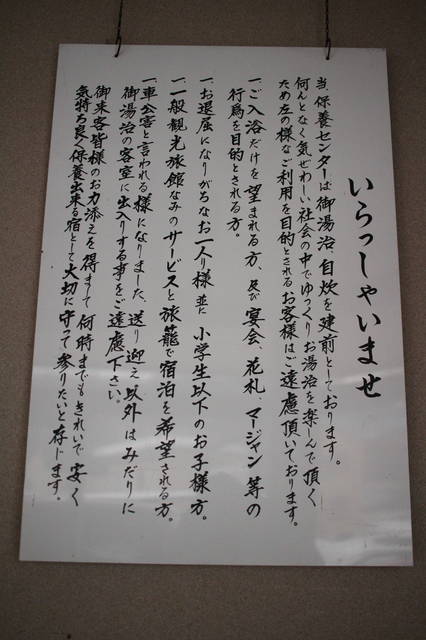 いらっしゃいませ
当、保養センターは御湯治、自炊を建前としております。
何んとなく気ぜわしい社会の中でゆっくりお湯治を楽しんで頂く
ため左の様なご利用を目的とされるお客様はご遠慮頂いております。
一、ご入浴だけを望まれる方、及び宴会、花札、マージャン等の
行為を目的とされる方。
一、お退屈になりがちなお一人り様並に小学生以下のお子様方。
一、一般観光旅館なみのサービスと旅籠で宿泊を希望される方。
一、車公害と言われる様になりました、送り迎え以外はみだりに
御湯治の客室に出入りする事をご遠慮下さい。
御来客皆様のお力添えを得まして何時までもきれいで安く
気持ち良く保養出来る宿として大切に守って参りたいと存じます。